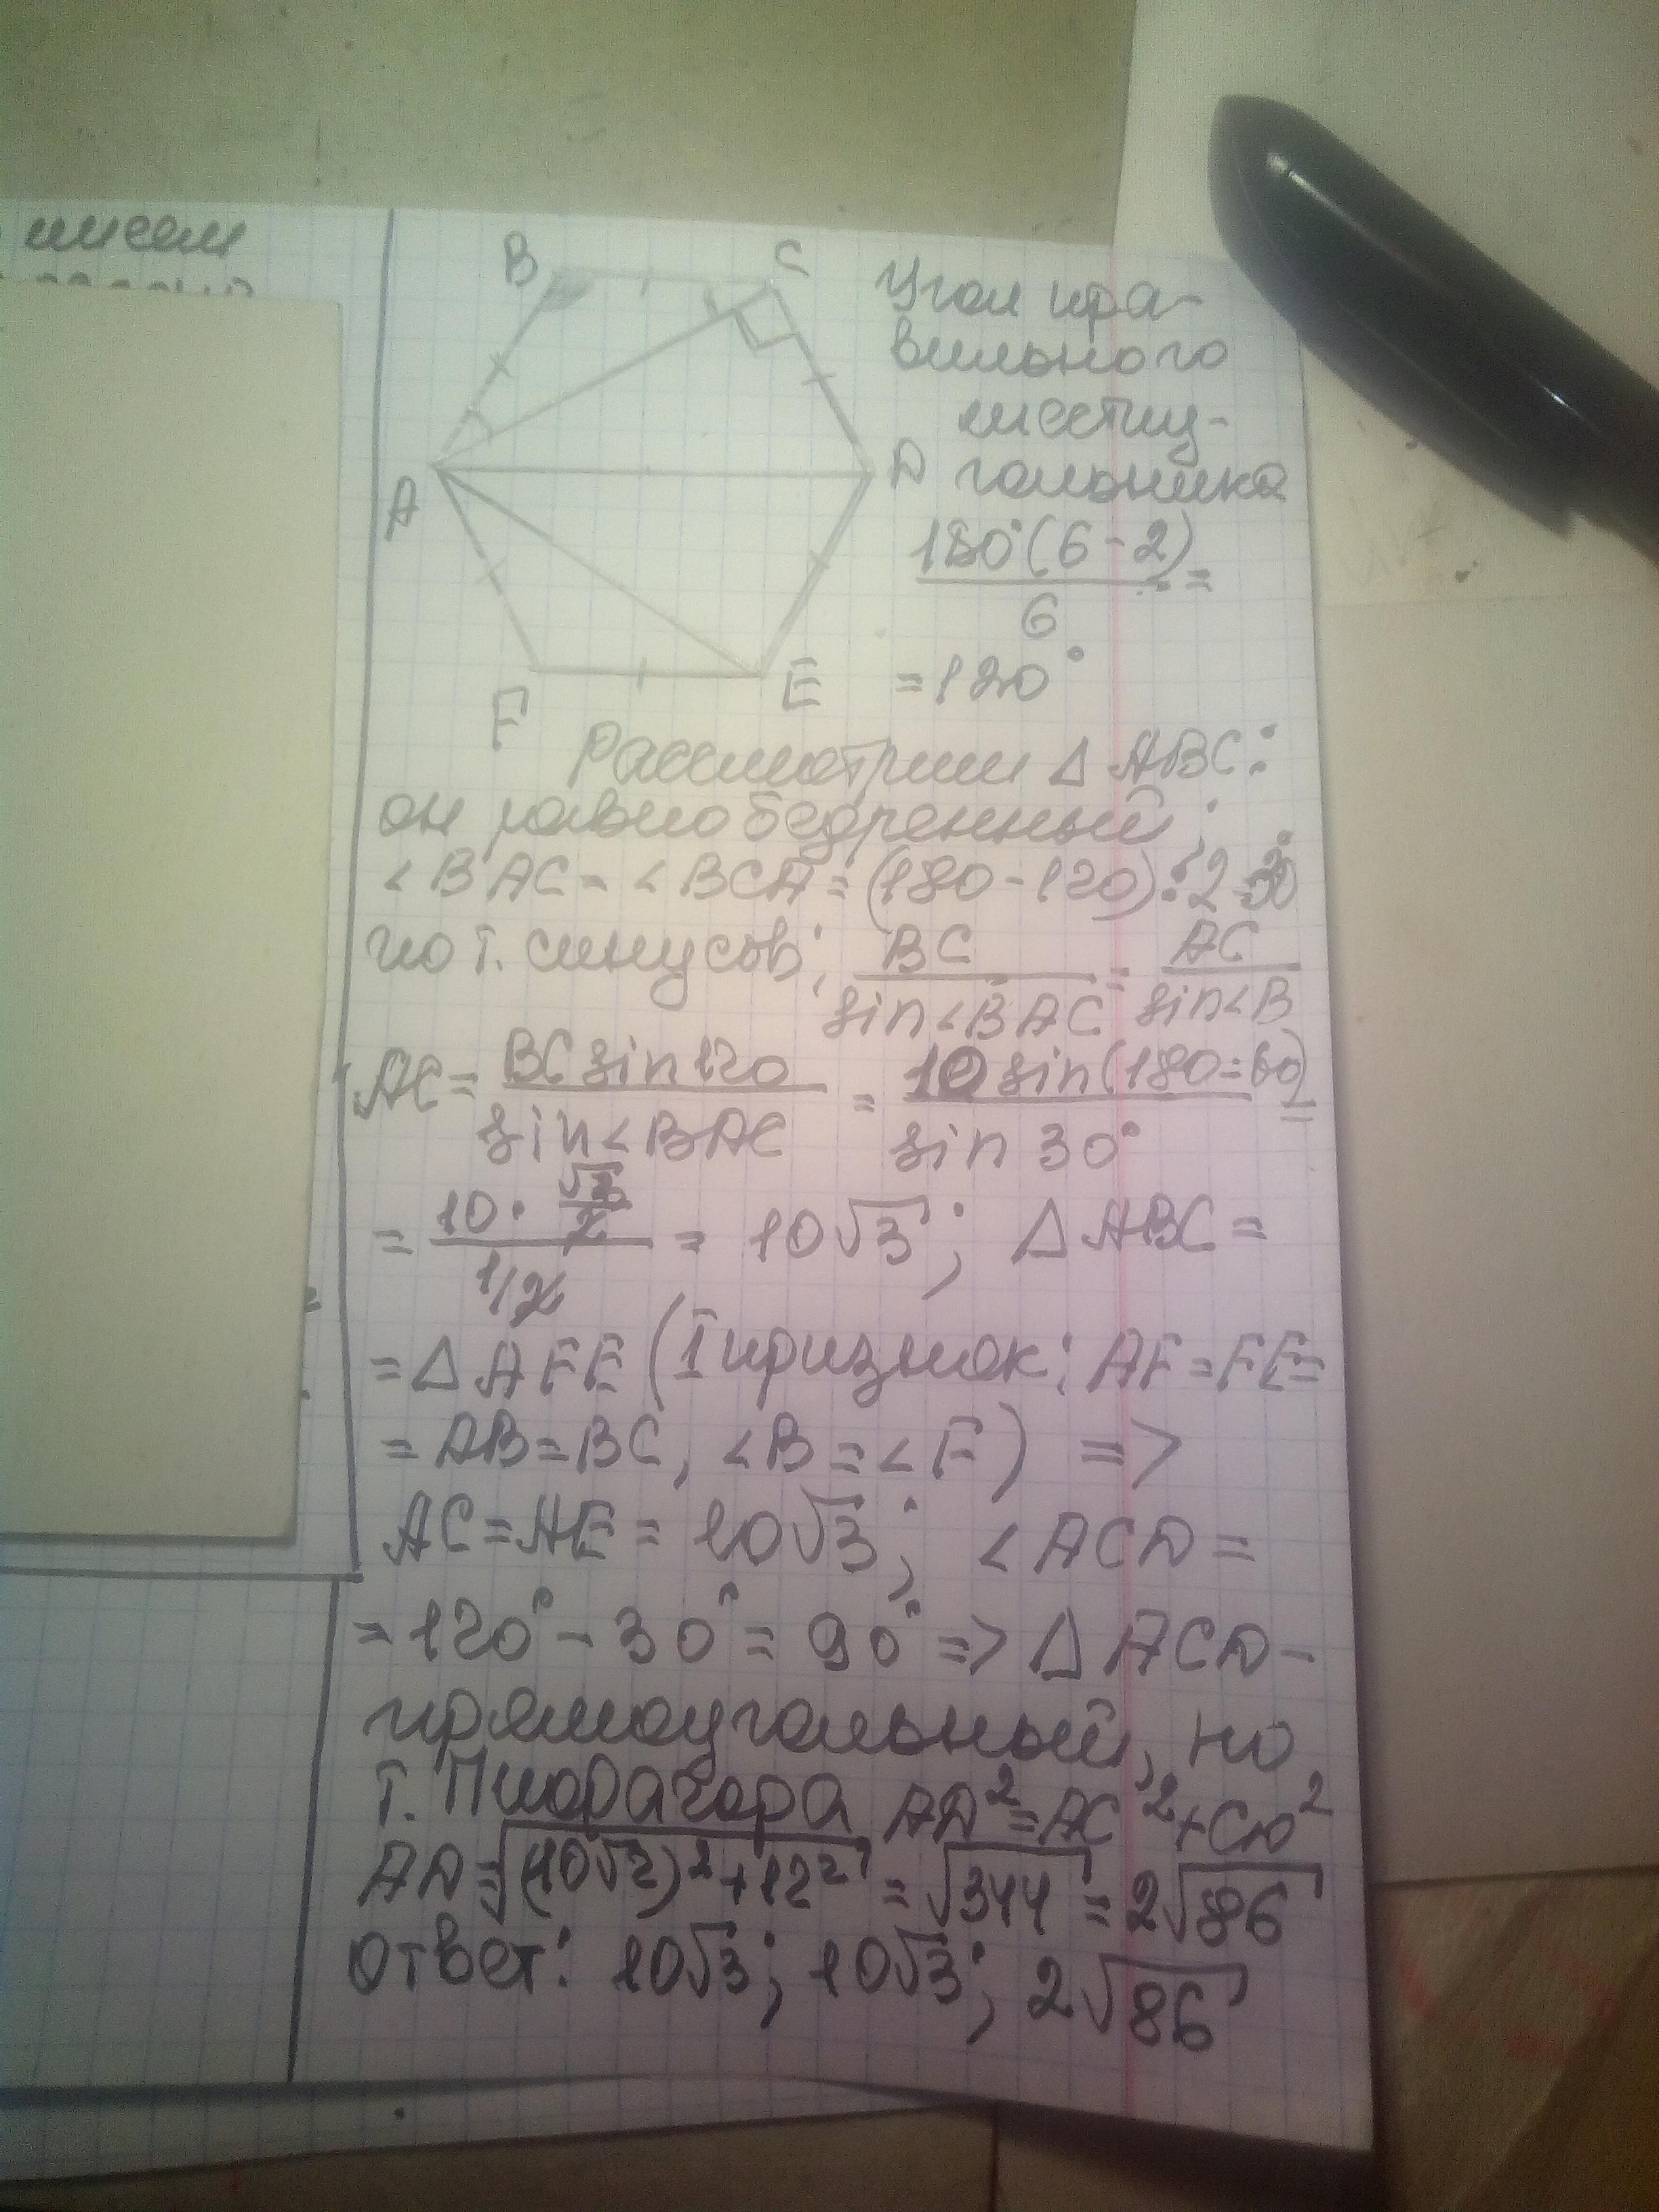 шсем
B
C
A
D
F
E
Угол пра-
вильного
шестиу-
гольника
180°(6-2)
6
=
=120°
Рассмотрим Δ ABC:
он равнобедренный;
<BAC = <BCA = (180-120):2 30°
по т. синусов; BC/sin<BAC = AC/sin<B
AC = BC sin120/sin<BAC = 10 sin(180-60)/sin 30° =
= 10·√3/2 / 1/2 = 10√3; Δ ABC =
= Δ AFE (I признак; AF = FE =
= AB = BC, <B = <F) =>
AC = AE = 10√3; <ACD =
= 120° - 30° = 90° => Δ ACD -
прямоугольный, по
т. Пифагора AD² = AC² + CD²
AD = √(10√2)² + 12² = √344 = 2√86
Ответ: 10√3; 10√3; 2√86